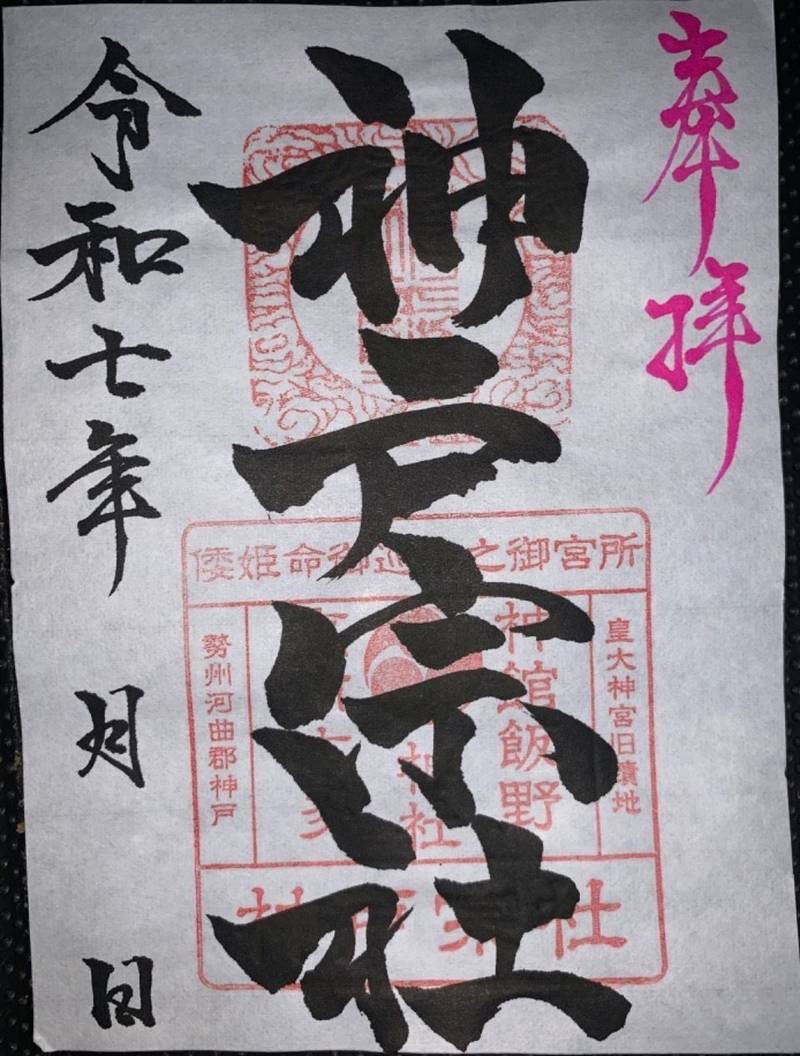 奉拝
神戸宗社
倭姫命御巡之御宮所
皇大神宮旧蹟地
神館飯野
神社
勢州河曲郡神戸
神戸宗社
令和七年 月 日